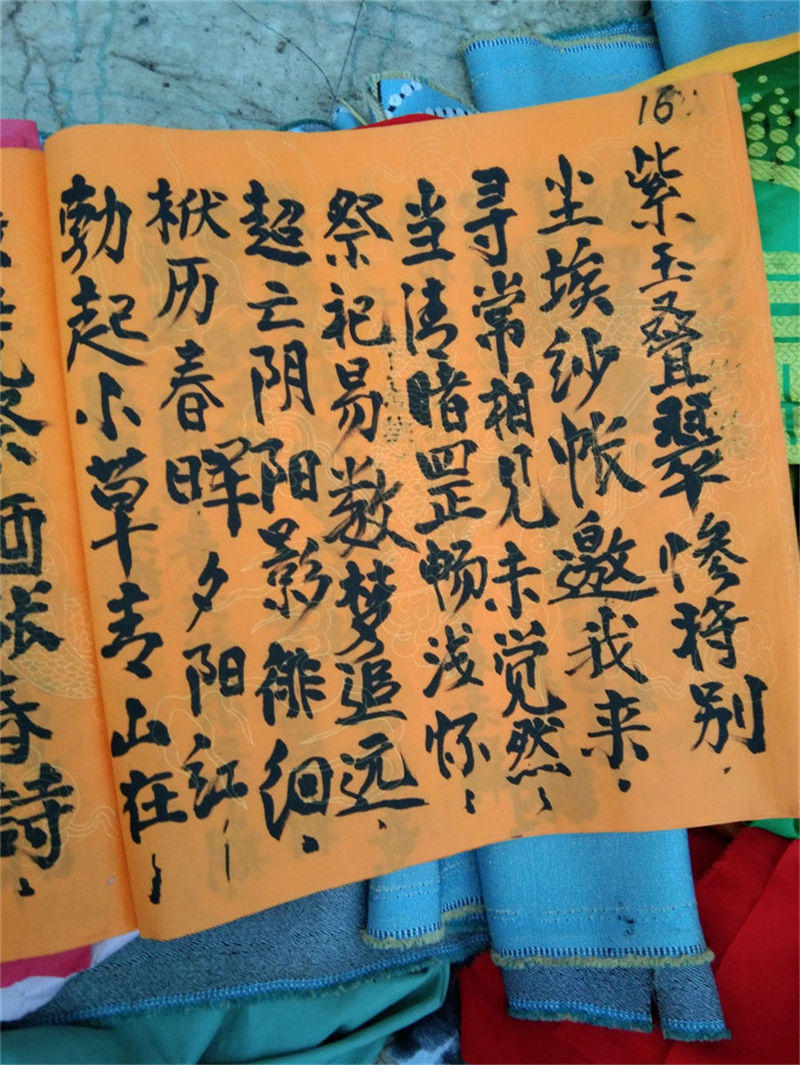 16
紫玉叠翠惨将别.
尘埃纱帐邀我来.
寻常相见未觉然、
当清暗罡畅浅怀、
祭祀易数梦追远.
超亡阴阳影徘徊、
栿历春晖夕阳红
勃起小草青山在、
詩、